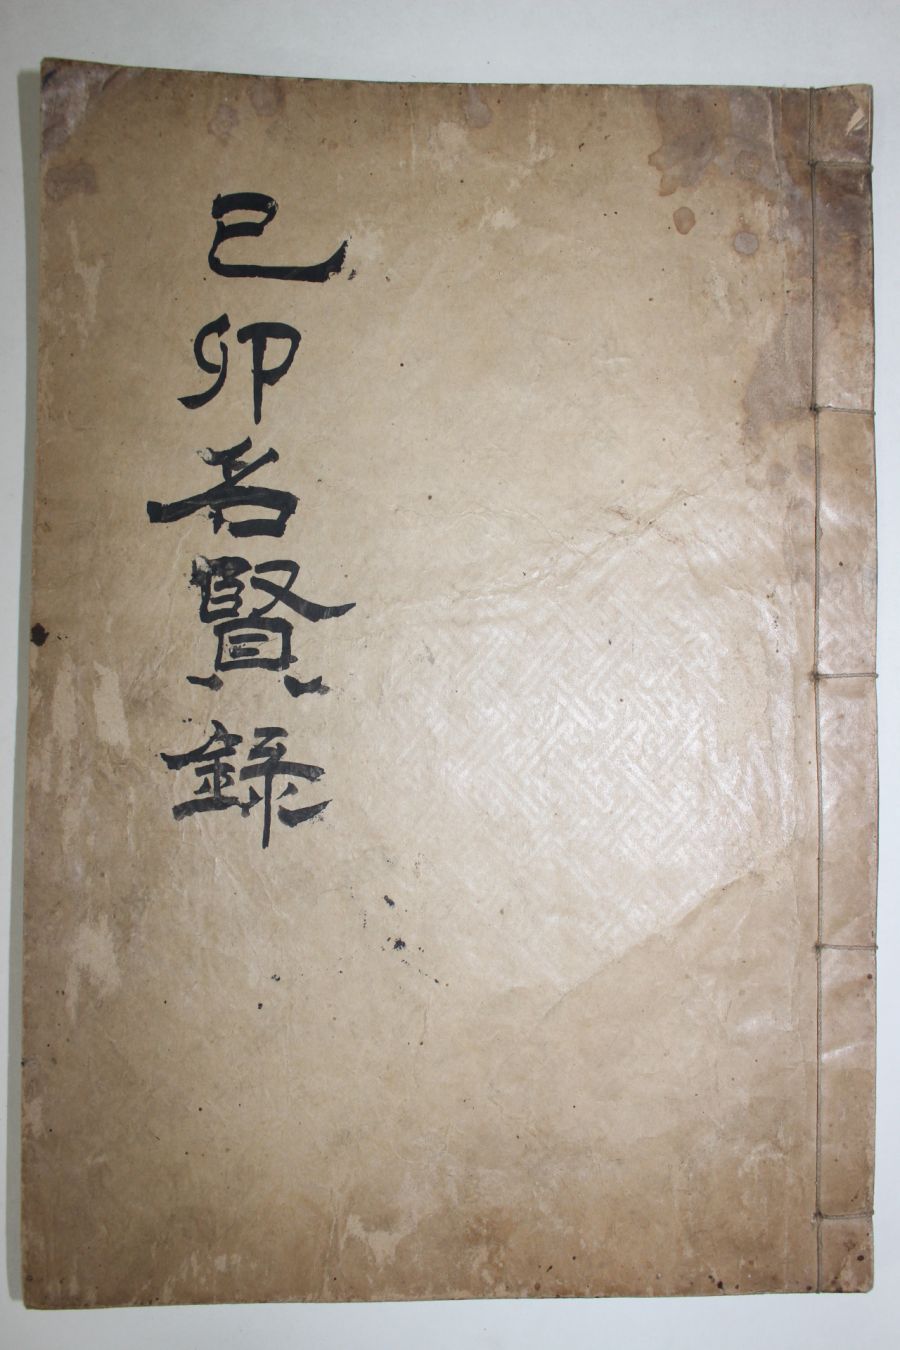 己卯名賢錄